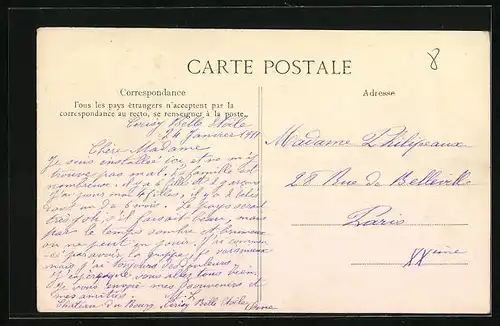 8
CARTE POSTALE
Correspondance
Tous les pays étrangers n'acceptent par la
correspondance au recto, se renseigner à la poste.
Adresse
Cerisy Belle Etoile
24 Janvier 1911
Chère Madame
Je suis installée ici, et ne m'y
trouve pas mal. La famille est
nombreuse. il y a 6 filles et 2 garçons
J'ai jours mal
un de 6 mois. Le pays serait
très joli s'il faisait beau, mais
par le temps sombre et brumeux
on ne peut en jouir. J'ai commen
cé par avoir la grippe,
mais j'ai toujours des douleurs.
J'espère que vous allez tous bien.
Je vous envoie mes souvenirs et
mes amitiés.
Château du Bourg. Cerisy Belle Etoile Orne
Madame Philipeaux
28 Rue de Belleville
Paris
XXème